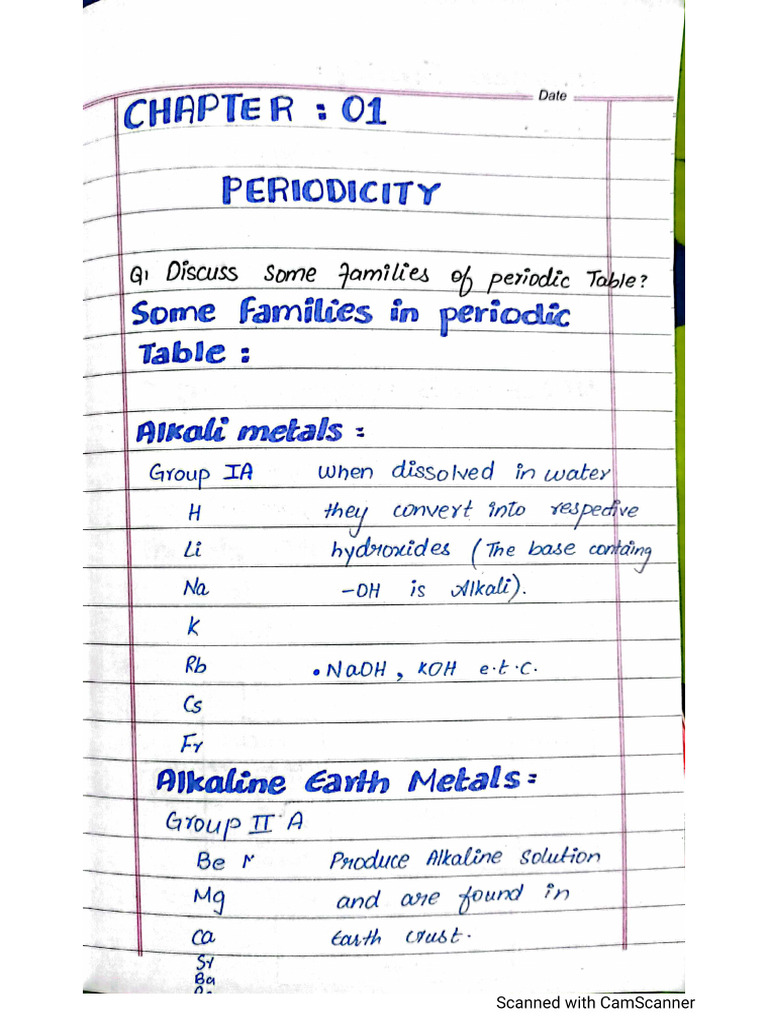 Date
CHAPTER : 01
PERIODICITY
Q1 Discuss some families of periodic Table?
Some families in periodic
Table :
Alkali metals :
Group IA When dissolved in water
H they convert into respective
Li hydroxides (The base containg
Na -OH is Alkali).
K
Rb • NaOH, KOH e.t.c.
Cs
Fr
Alkaline Earth Metals :
Group II A
Be Produce Alkaline solution
Mg and are found in
Ca Earth crust.
Sr
Ba
Scanned with CamScanner